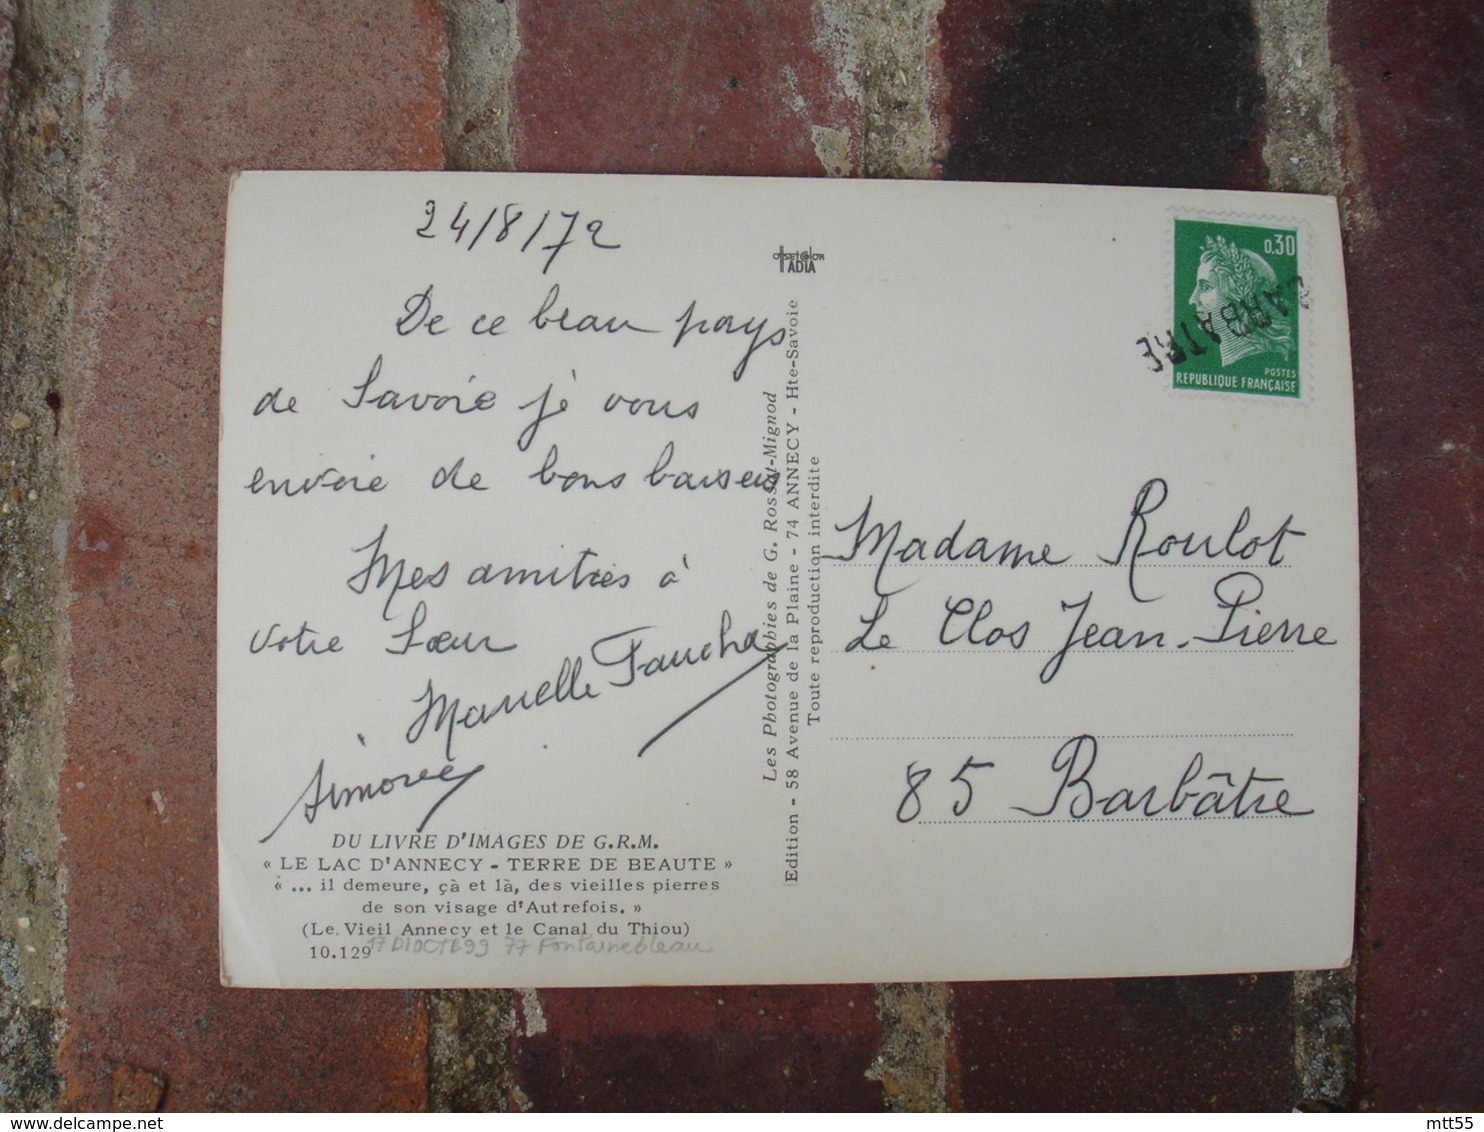 24/8/72
De ce beau pays
de Savoie je vous
envoie de bons baisers
Mes amitiés à
votre Sœur
DU LIVRE D'IMAGES DE G.R.M.
« LE LAC D'ANNECY - TERRE DE BEAUTE »
« ... il demeure, çà et là, des vieilles pierres
de son visage d'Autrefois. »
(Le Vieil Annecy et le Canal du Thiou)
10.129
77 Fontainebleau
OFFSETCOLOR
IADIA
Les Photographies de G. Rossat-Mignod
Edition - 58 Avenue de la Plaine - 74 ANNECY - Hte-Savoie
Toute reproduction interdite
0,30
POSTES
REPUBLIQUE FRANÇAISE
BARBATRE
Madame Roulot
Le Clos Jean-Pierre
85 Barbâtre
mtt55